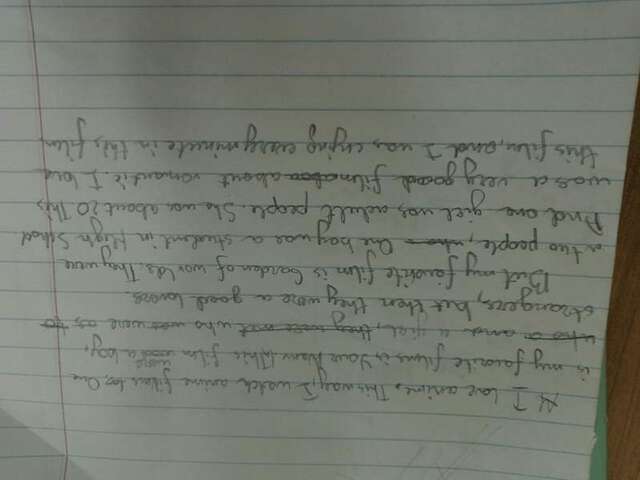 I love anime. This way, I watch anime films too. One
is my favorite films is Your Name. This film was a boy,
and a girl, who were as
strangers, but then they were a good lovers.
But my favorite film is Garden of worlds. They were
two people, One boy was a student in High School
And one girl was adult people. She was about 20 This
was a very good film about romantic. I love
this film, and I was crying every minute in this film